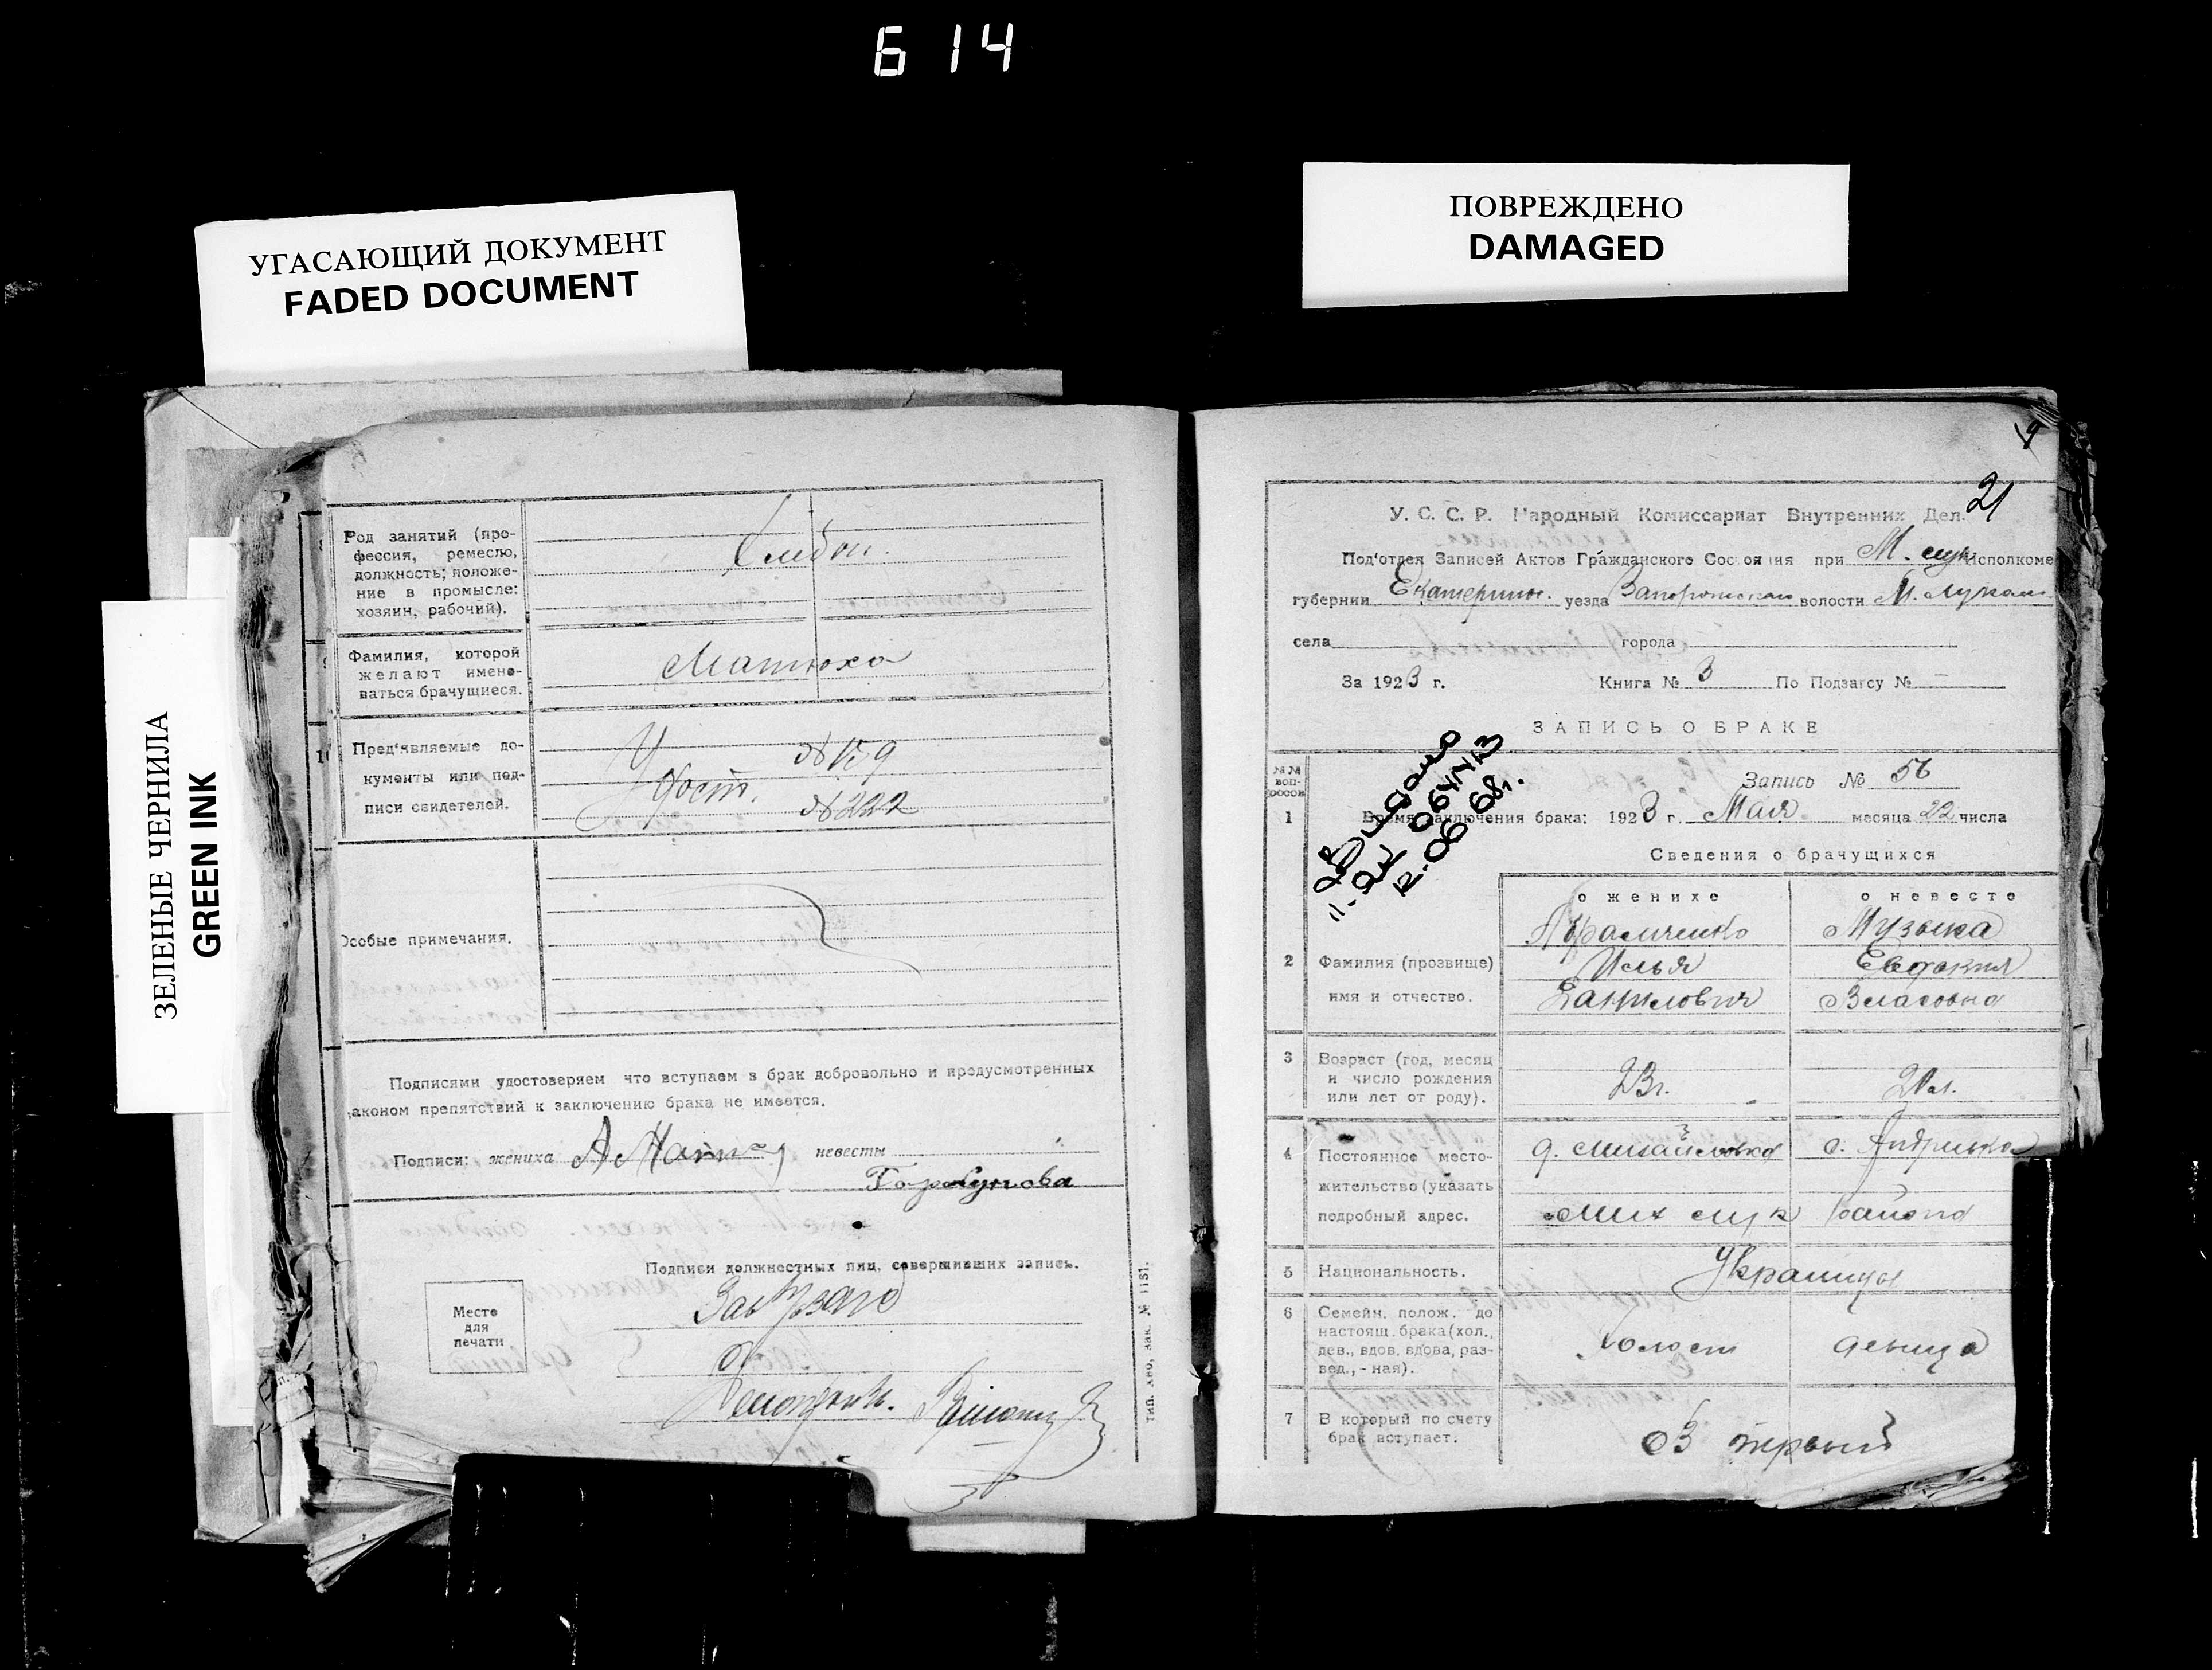 614
УГАСАЮЩИЙ ДОКУМЕНТ
FADED DOCUMENT
ПОВРЕЖДЕНО
DAMAGED
ЗЕЛЕНЫЕ ЧЕРНИЛА
GREEN INK
Род занятий (про-
фессия, ремесло,
должность; положе-
ние в промысле:
хозяин, рабочий).
Хлебоп.
Фамилия, которой
желают имено-
ваться брачущиеся.
Матюха
Пред'являемые до-
кументы или под-
писи свидетелей.
У № 159
дост. № 222
Особые примечания.
Подписями удостоверяем что вступаем в брак добровольно и предусмотренных
законом препятствий к заключению брака не имеется.
Подписи: жениха невесты
Подписи должностных лиц, совершивших запись.
Место
для
печати
Тип. зак. № 1151.
21
У. С. С. Р. Народный Комиссариат Внутренних Дел.
Под'отдел Записей Актов Гражданского Состояния при М. Исполкоме
губернии Екатеринос. уезда волости М. Лукаш
села города
За 1923 г. Книга № 3 По Подзагсу № —
ЗАПИСЬ О БРАКЕ
№№ воп-росов
Запись № 56
1 Время заключения брака: 1923 г. Мая месяца 22 числа
Сведения о брачущихся
о женихе о невесте
2 Фамилия (прозвище)
имя и отчество.
Абрамченко Музыка
Илья Евдокия
Данилович Власовна
3 Возраст (год, месяц
и число рождения
или лет от роду).
23 г. 20 л.
4 Постоянное место-
жительство (указать
подробный адрес.
д. Михайловка с.
Мих Лук района
5 Национальность.
Украинцы
6 Семейн. полож. до
настоящ. брака (хол.,
дев., вдов, вдова, раз-
вед., - ная).
холост девица
7 В который по счету
брак вступает.
в первый